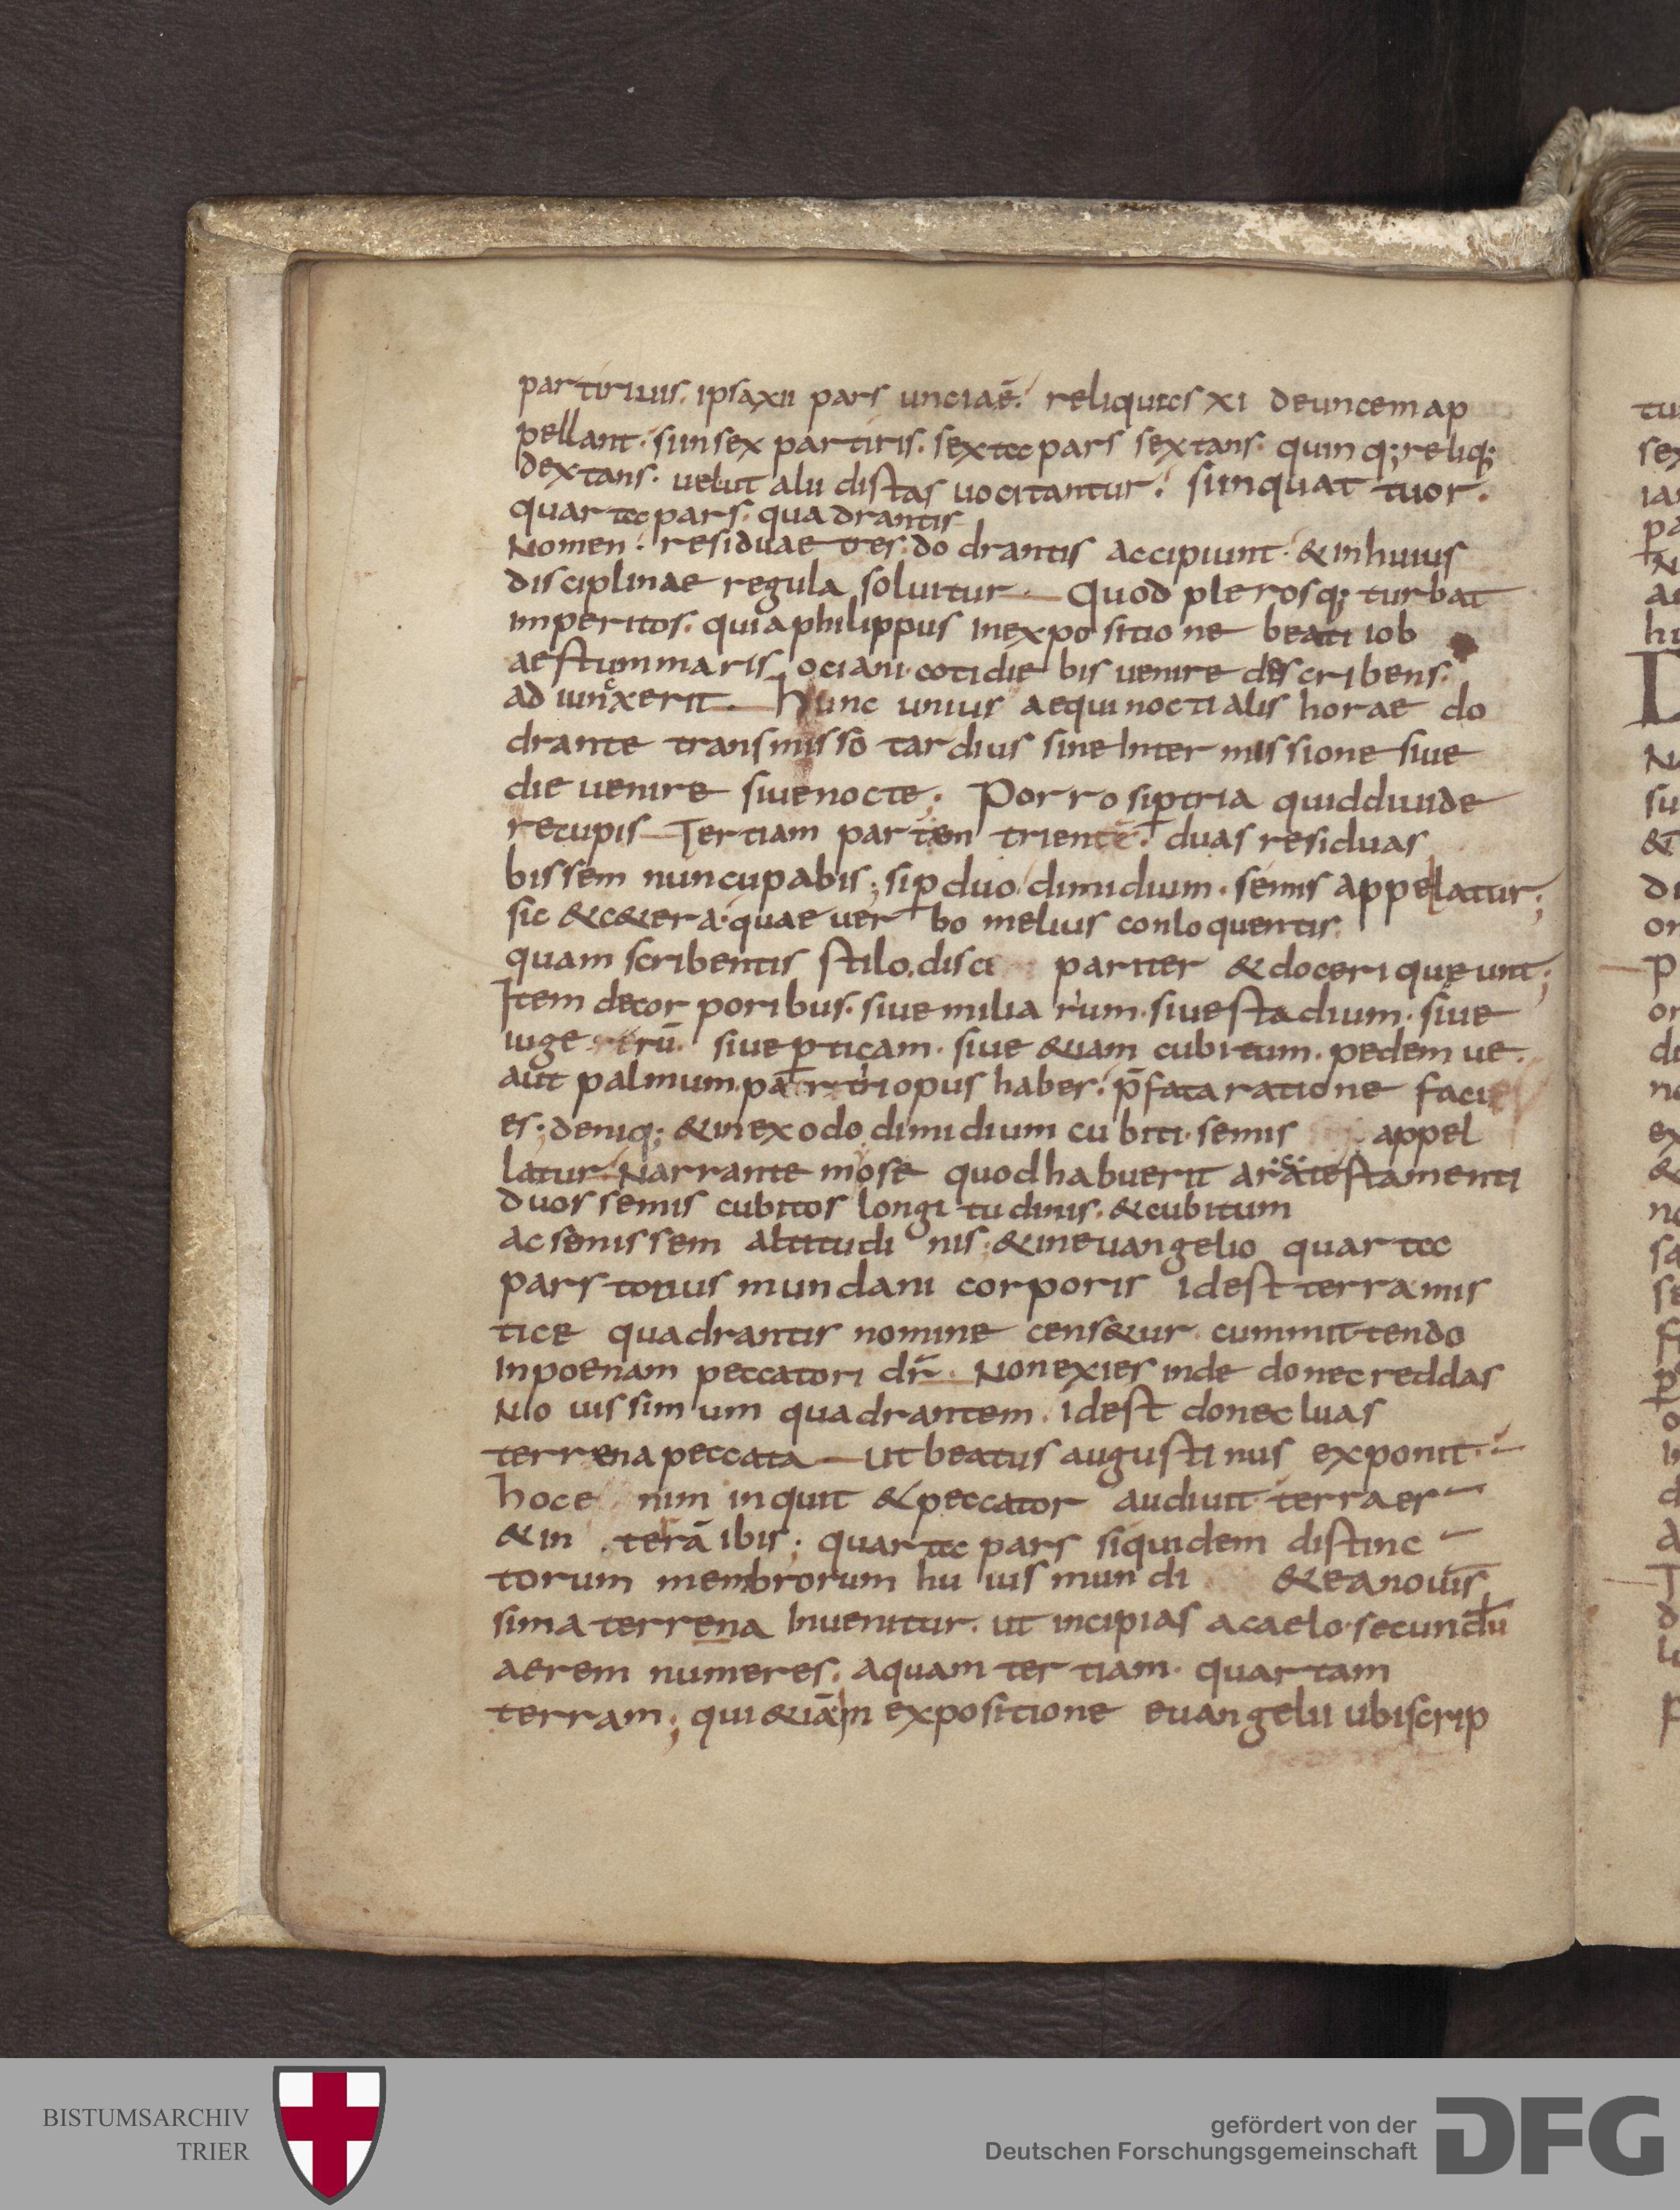 partiruus. ipsa xii pars unciaē. reliquas xi deuncem ap
pellant. sim sex partiris. sexta pars sextans. quinq; reliq;
dextans. uelut alii distas uocitantur. sim quattuor.
quarta pars. quadrantis
Nomen. residuae tres. dodrantis accipiunt. & in huius
disciplinae regula soluitur. Quod plerosq; turbat
imperitos. quia philippus in expositione beati iob
aestum maris, ociani cotidie bis uenire describens.
adiunxerit. hunc unius aequinoctialis horae do
drante transmisso tardius sine intermissione siue
die uenire siue nocte. Porro si p tria quid diuide
re cupis Tertiam partem trientē. duas residuas
bissem nuncupabis; si p duo dimidium. semis appellatur;
sic & c&era. quae uerbo melius conloquentis
quam scribentis stilo. disci pariter & doceri queunt;
Item de corporibus. siue miliarium. siue stadium. siue
iugerū. siue pticam. siue &iam cubitum. pedem ue.
aut palmum. partiri opus haber. p̄fata ratione faci
es; deniq; & in exodo dimidium cubiti. semis appel
latur. Narrante mose quod habuerit ara testamenti
duos semis cubitos longitudinis. & cubitum
ac semissem altitudinis; & in euangelio quarta
pars totius mundani corporis id est terra mis
tice quadrantis nomine cens&ur. cum mittendo
in poenam peccatori dr̄. Non exies inde donec reddas
Nouissimum quadrantem. id est donec luas
terrena peccata ut beatus augustinus exponit.
hoc enim inquit & peccator audiuit terra er
& in terā ibis; quarta pars siquidem distinc
torum membrorum huius mundi & ea nouis
sima terrena inuenitur. ut incipias a caelo. secundū
aerem numeres. aquam tertiam. quartam
terram; qui &iā in expositione euangelii ubi scrip
BISTUMSARCHIV
TRIER
gefördert von der
Deutschen Forschungsgemeinschaft
DFG